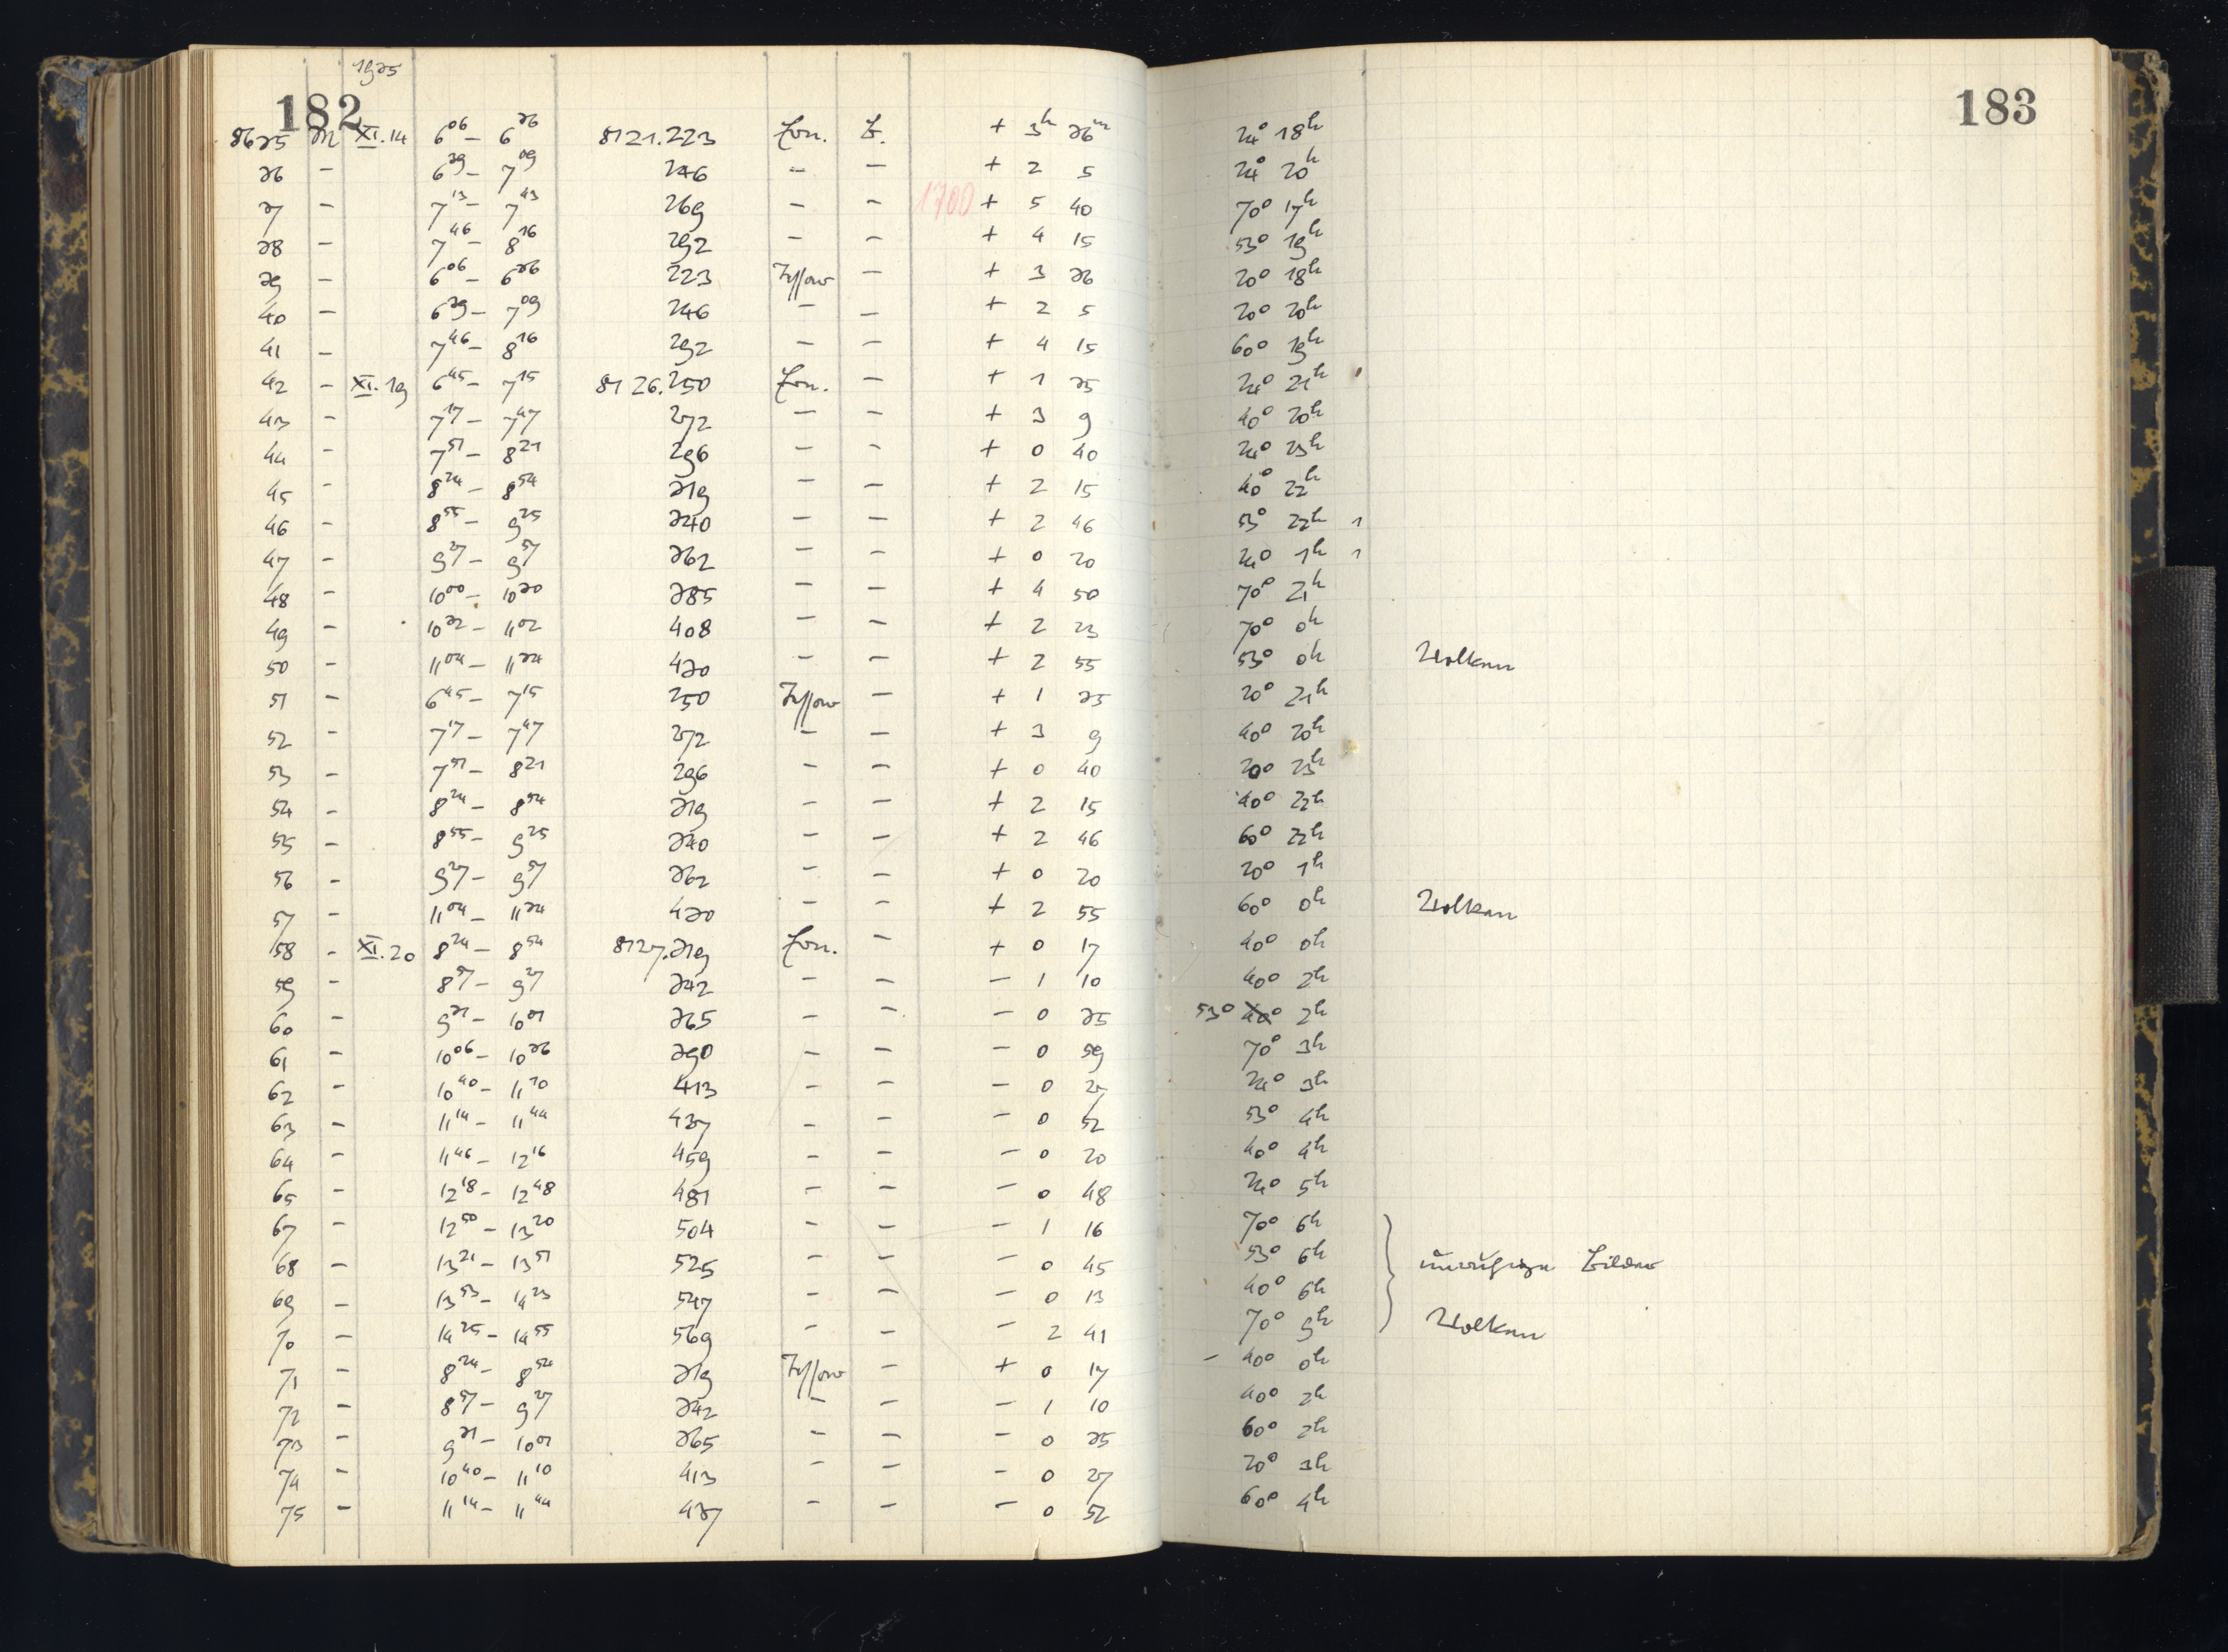 182 183
1935
8635 M XI.14 6⁰⁶ – 6³⁶ 8121.223 Ern. B. + 3ʰ 36ᵐ 24° 18ʰ
36 – 6³⁹ – 7⁰⁹ 246 – – + 2 5 24° 20ʰ
37 – 7¹³ – 7⁴³ 269 – – 1700 + 5 40 70° 17ʰ
38 – 7⁴⁶ – 8¹⁶ 292 – – + 4 15 53° 19ʰ
39 – 6⁰⁶ – 6³⁶ 223 Tessar – + 3 36 20° 18ʰ
40 – 6³⁹ – 7⁰⁹ 246 – – + 2 5 20° 20ʰ
41 – 7⁴⁶ – 8¹⁶ 292 – – + 4 15 60° 19ʰ
42 – XI.19 6⁴⁵ – 7¹⁵ 8126.250 Ern. – + 1 35 24° 21ʰ
43 – 7¹⁷ – 7⁴⁷ 272 – – + 3 9 40° 20ʰ
44 – 7⁵¹ – 8²¹ 296 – – + 0 40 24° 23ʰ
45 – 8²⁴ – 8⁵⁴ 319 – – + 2 15 40° 22ʰ
46 – 8⁵⁵ – 9²⁵ 340 – – + 2 46 53° 22ʰ 1
47 – 9²⁷ – 9⁵⁷ 362 – – + 0 20 24° 1ʰ 1
48 – 10⁰⁰ – 10³⁰ 385 – – + 4 50 70° 21ʰ
49 – 10³² – 11⁰² 408 – – + 2 23 70° 0ʰ
50 – 11⁰⁴ – 11³⁴ 430 – – + 2 55 53° 0ʰ Wolken
51 – 6⁴⁵ – 7¹⁵ 250 Tessar – + 1 35 20° 21ʰ
52 – 7¹⁷ – 7⁴⁷ 272 – – + 3 9 40° 20ʰ
53 – 7⁵¹ – 8²¹ 296 – – + 0 40 20° 23ʰ
54 – 8²⁴ – 8⁵⁴ 319 – – + 2 15 40° 22ʰ
55 – 8⁵⁵ – 9²⁵ 340 – – + 2 46 60° 22ʰ
56 – 9²⁷ – 9⁵⁷ 362 – – + 0 20 20° 1ʰ
57 – 11⁰⁴ – 11³⁴ 430 – – + 2 55 60° 0ʰ Wolken
58 – XI.20 8²⁴ – 8⁵⁴ 8127.319 Ern. – + 0 17 40° 0ʰ
59 – 8⁵⁷ – 9²⁷ 342 – – – 1 10 40° 2ʰ
60 – 9³¹ – 10⁰¹ 365 – – – 0 35 53° 40° 2ʰ
61 – 10⁰⁶ – 10³⁶ 390 – – – 0 59 70° 3ʰ
62 – 10⁴⁰ – 11¹⁰ 413 – – – 0 27 24° 3ʰ
63 – 11¹⁴ – 11⁴⁴ 437 – – – 0 52 53° 4ʰ
64 – 11⁴⁶ – 12¹⁶ 459 – – – 0 20 40° 4ʰ
65 – 12¹⁸ – 12⁴⁸ 481 – – – 0 48 24° 5ʰ
67 – 12⁵⁰ – 13²⁰ 504 – – – 1 16 70° 6ʰ
68 – 13²¹ – 13⁵¹ 525 – – – 0 45 53° 6ʰ unruhige Bilder
69 – 13⁵³ – 14²³ 547 – – – 0 13 40° 6ʰ
70 – 14²⁵ – 14⁵⁵ 569 – – – 2 41 70° 9ʰ Wolken
71 – 8²⁴ – 8⁵⁴ 319 Tessar – + 0 17 – 40° 0ʰ
72 – 8⁵⁷ – 9²⁷ 342 – – – 1 10 40° 2ʰ
73 – 9³¹ – 10⁰¹ 365 – – – 0 35 60° 2ʰ
74 – 10⁴⁰ – 11¹⁰ 413 – – – 0 27 20° 3ʰ
75 – 11¹⁴ – 11⁴⁴ 437 – – – 0 52 60° 4ʰ